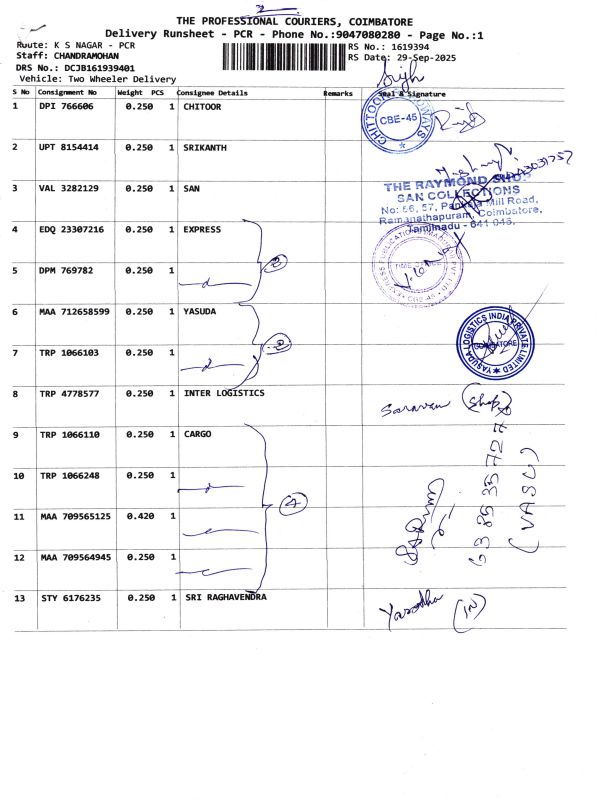 THE PROFESSIONAL COURIERS, COIMBATORE
Delivery Runsheet - PCR - Phone No.:9047080280 - Page No.:1
Route: K S NAGAR - PCR
RS No.: 1619394
Staff: CHANDRAMOHAN
RS Date: 29-Sep-2025
DRS No.: DCJB161939401
Vehicle: Two Wheeler Delivery
S No Consignment No Weight PCS Consignee Details Remarks Seal & Signature
1 DPI 766606 0.250 1 CHITOOR
CBE-45
2 UPT 8154414 0.250 1 SRIKANTH
3 VAL 3282129 0.250 1 SAN
THE RAYMOND SHOP
SAN COLLECTIONS
No: 56, 57, Mill Road,
Ramanathapuram, Coimbatore,
Tamilnadu - 641 045.
4 EDQ 23307216 0.250 1 EXPRESS
5 DPM 769782 0.250 1
6 MAA 712658599 0.250 1 YASUDA
YASUDA LOGISTICS INDIA PRIVATE LIMITED
COIMBATORE
7 TRP 1066103 0.250 1
8 TRP 4778577 0.250 1 INTER LOGISTICS
Saravan (Shop)
9 TRP 1066110 0.250 1 CARGO
10 TRP 1066248 0.250 1
11 MAA 709565125 0.420 1
4
(VASU)
12 MAA 709564945 0.250 1
13 STY 6176235 0.250 1 SRI RAGHAVENDRA
Yasodha (IN)